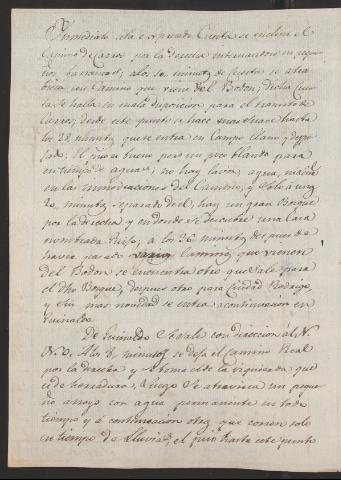 Inmediato a la expresada Cuesta se inclina el
Camino de Carros por la derecha internandose en peque
ños barrancos; a los 20 minutos de Cuesta se atra
biesa un Camino que viene del Bodon; dicha Cues
ta se halla en mala disposicion para el transito de
Carros; desde este punto se hace mas suave hasta
los 28 minutos que se entra en Campo llano y despe
jado. El piso es bueno pero un poco blando para
en tiempo de aguas; no hay Casa, agua,
en las inmediaciones del Camino, y solo a unos
20 minutos separado de el, hay un gran Bosque
por la derecha y en donde se descubre una Casa
nombrada a los 36 minutos despues de
haver pasado varios Caminos que vienen
del Bodon se encuentra otro que sale para
el dho Bosque, despues otro para Ciudad Rodrigo,
y sin mas novedad se entra a continuacion en
Guinaldo.
De Guinaldo se sale con direccion al N.
N.O. A los 8 minutos se deja el Camino Real
por la derecha y se toma el de la izquierda que
es de herradura, a luego se atraviesa un peque
ño arroyo con agua permanente en todo
tiempo y a continuacion otros que corren solo
en tiempo de lluvias, el piso hasta este punto